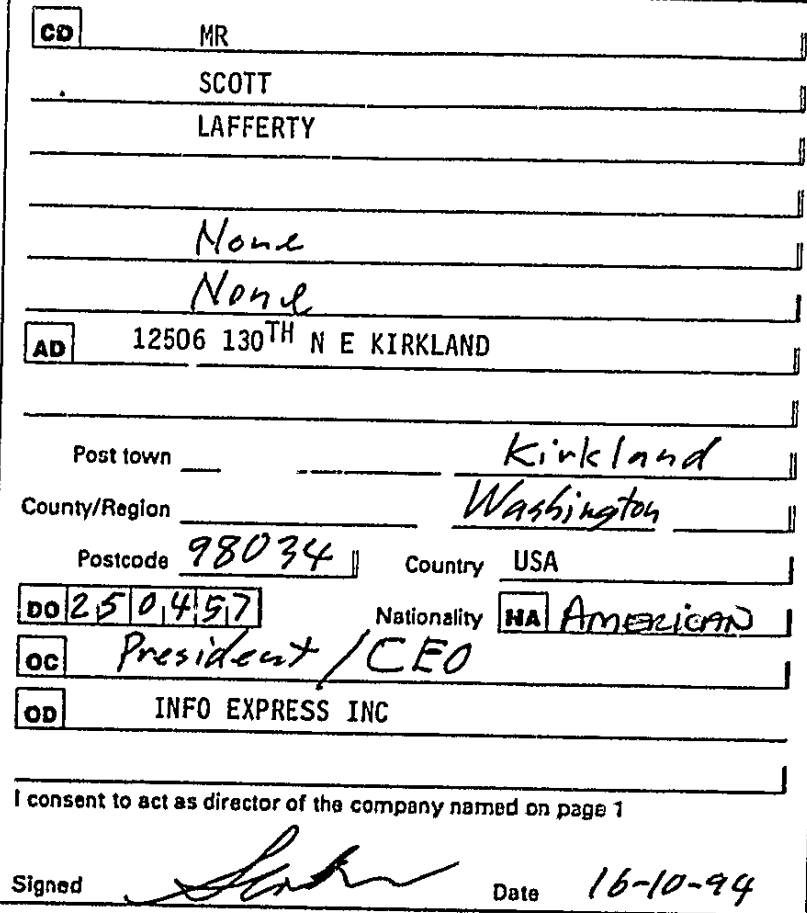 CD MR
SCOTT
LAFFERTY
None
None
AD 12506 130TH N E KIRKLAND
Post town Kirkland
County/Region Washington
Postcode 98034 Country USA
DO 250457 Nationality NA AMERICAN
OC President/CEO
OD INFO EXPRESS INC
I consent to act as director of the company named on page 1
Signed Date 16-10-94